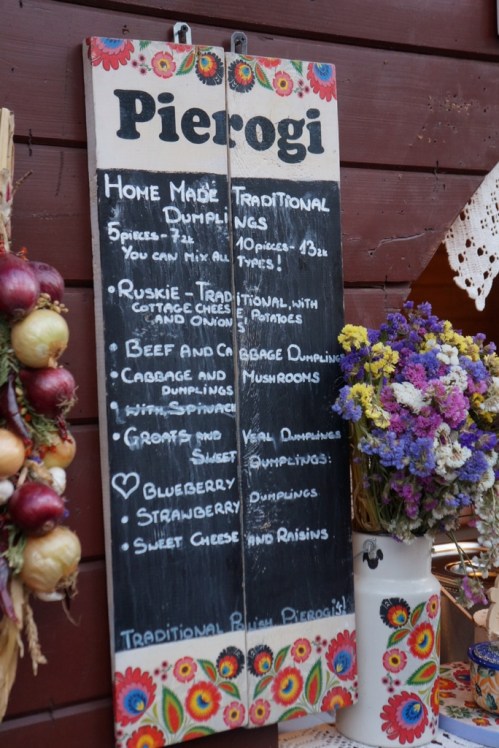 Pierogi
HOME MADE TRADITIONAL
DUMPLINGS
5 PIECES - 7zł 10 PIECES - 13zł
YOU CAN MIX ALL TYPES!
• RUSKIE - TRADITIONAL, WITH
COTTAGE CHEESE, POTATOES
AND ONIONS
• BEEF AND CABBAGE DUMPLINGS
• CABBAGE AND MUSHROOMS
DUMPLINGS
• WITH SPINACH
• GROATS AND VEAL DUMPLINGS
SWEET DUMPLINGS:
♡ BLUEBERRY DUMPLINGS
• STRAWBERRY
• SWEET CHEESE AND RAISINS
TRADITIONAL POLISH PIEROGIS!